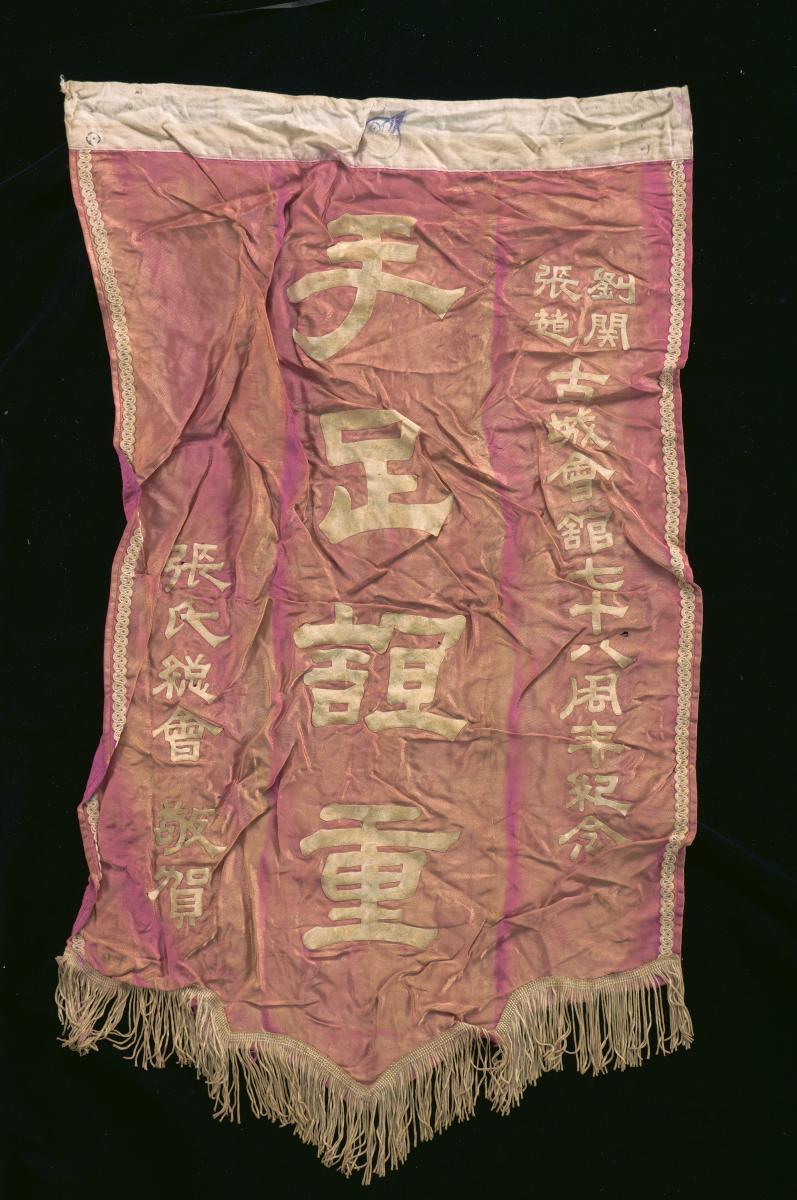 劉関
張趙
古城會舘七十八周年紀念
手足誼重
張氏總會 敬賀